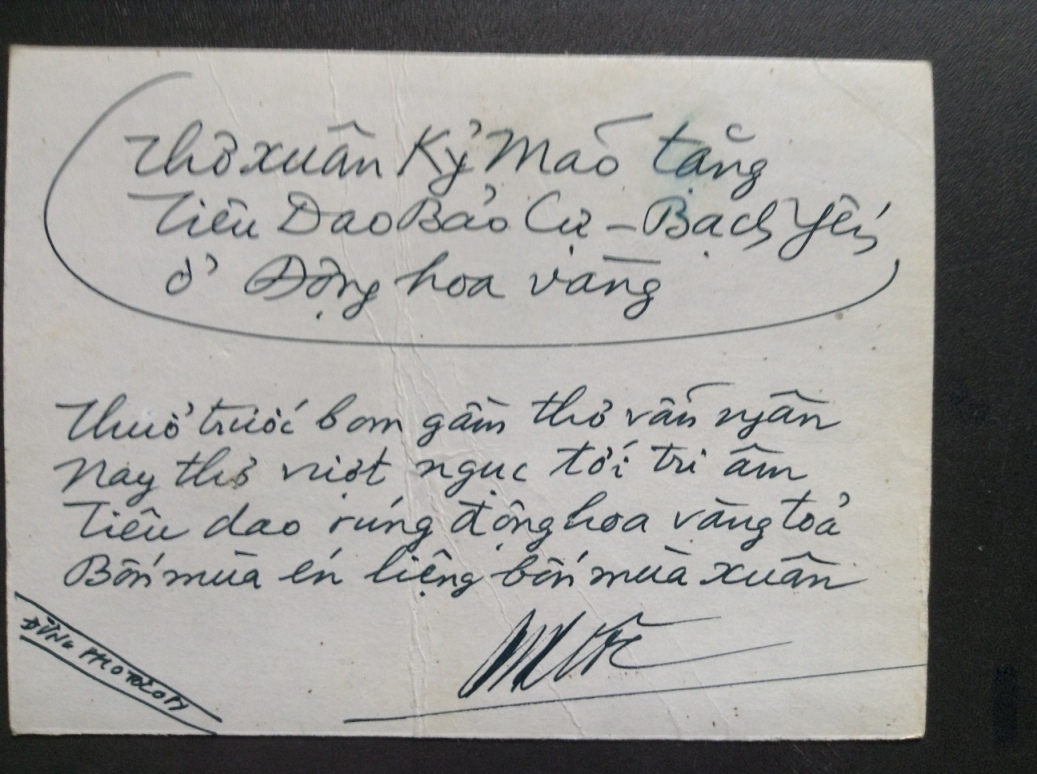 Thơ xuân Kỷ Mão tặng
Tiêu Dao Bảo Cự - Bạch Yến
ở Động hoa vàng
Thuở trước bom gầm thơ vẫn ngân
Nay thơ vượt ngục tới tri âm
Tiêu dao rừng động hoa vàng toả
Bốn mùa én liệng bốn mùa xuân
ĐỪNG PHOTOCOPY